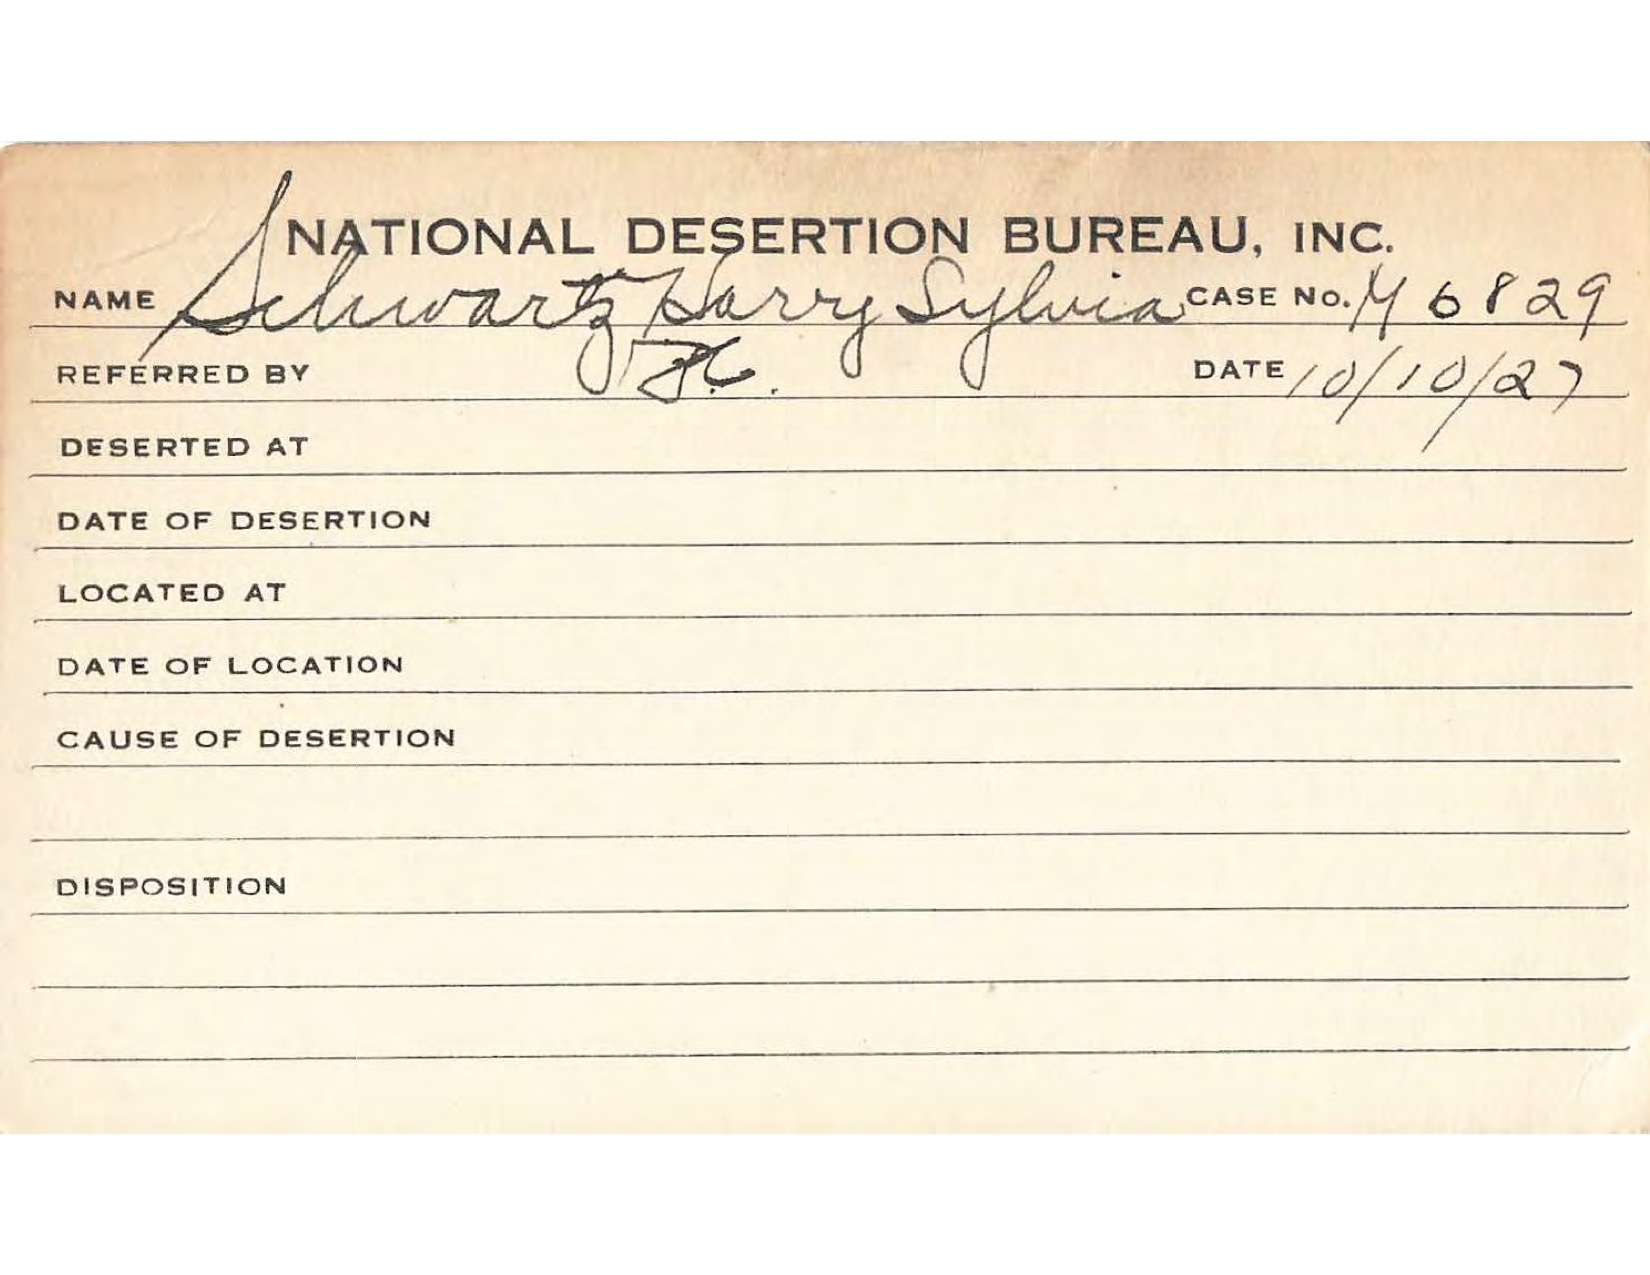 NATIONAL DESERTION BUREAU, INC.
NAME Schwartz Harry Sylvia CASE No. M 6829
REFERRED BY DATE 10/10/27
DESERTED AT
DATE OF DESERTION
LOCATED AT
DATE OF LOCATION
CAUSE OF DESERTION
DISPOSITION